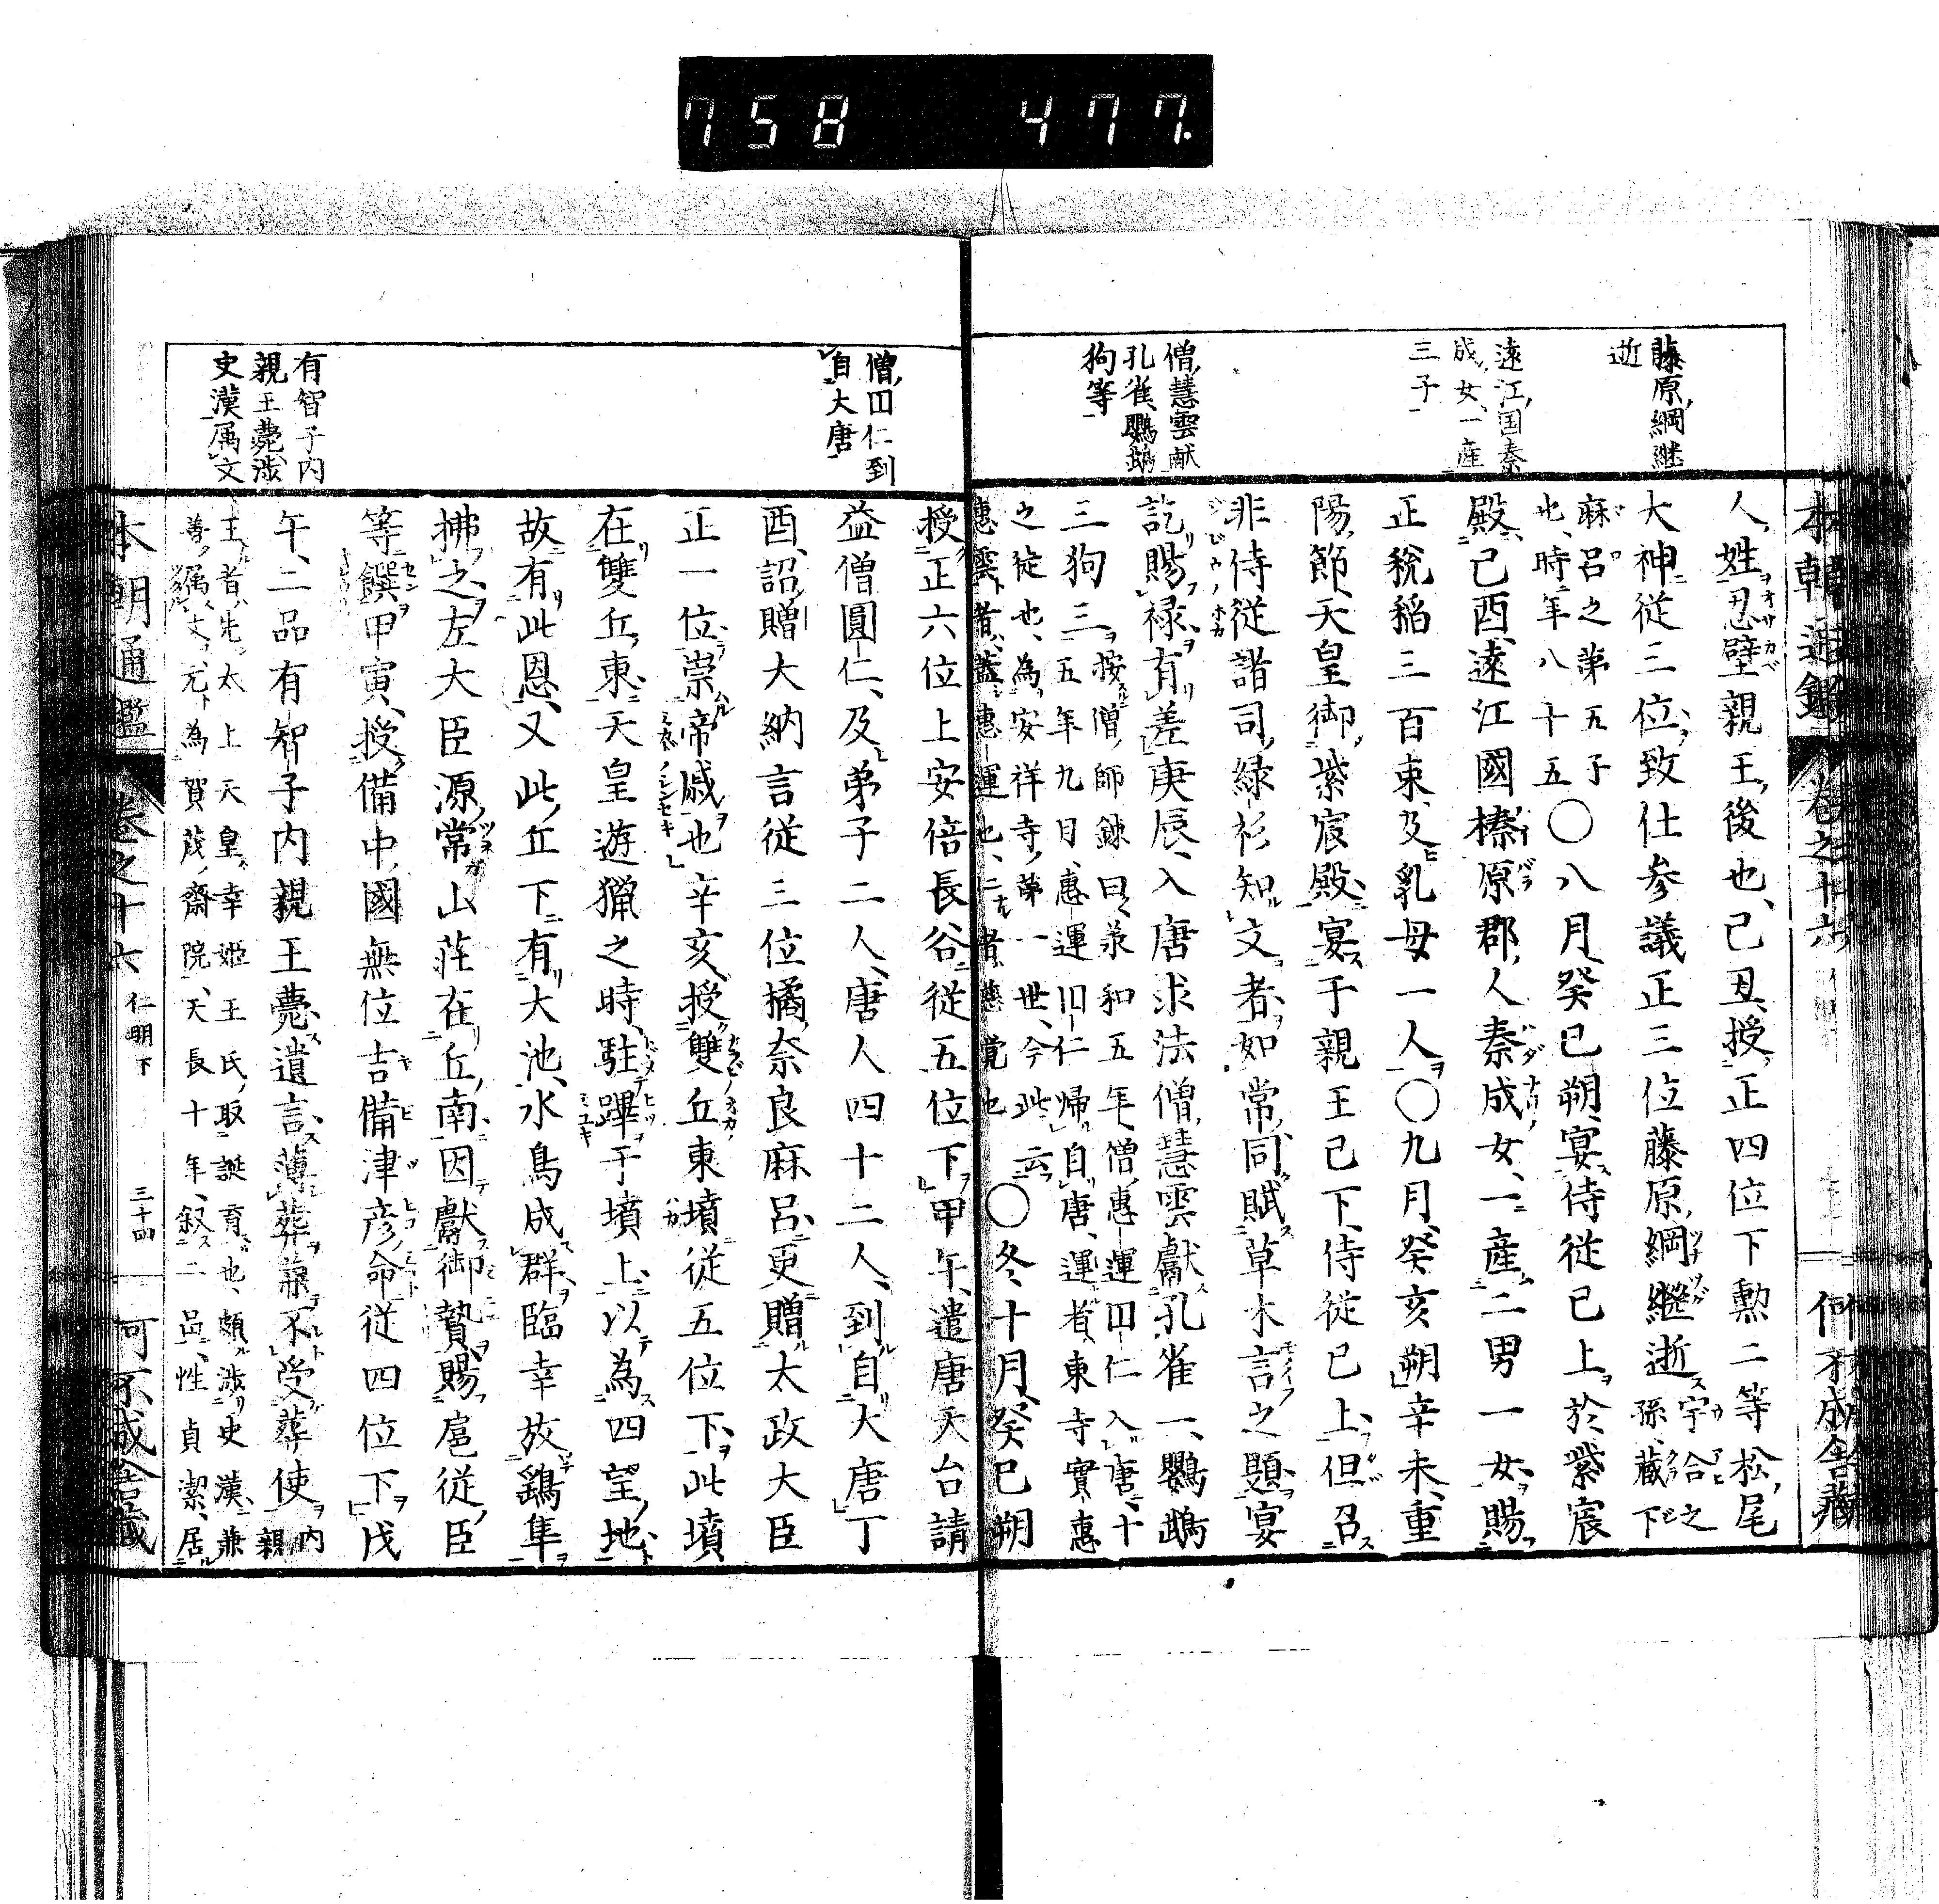 758 477.
藤原綱継
逝
遠江国秦
成女一産
三子
僧慧雲献
孔雀鸚鵡
狗等
人姓忍壁親王後也己丑授正四位下勲二等松尾
大神従三位致仕参議正三位藤原綱継逝
宇合之
孫蔵下
麻呂之第五子
也時年八十五
○八月癸巳朔宴侍従已上於紫宸
殿己酉遠江國榛原郡人秦成女一産二男一女賜
正税稲三百束及乳母一人○九月癸亥朔辛未重
陽節天皇御紫宸殿宴于親王已下侍従已上但召
非侍従諸司緑衫知文者如常同賦草木言之題宴
訖賜禄有差庚辰入唐求法僧慧雲獻孔雀一鸚鵡
三狗三
按僧師錬曰承和五年僧惠運円仁入唐十
五年九月惠運円仁帰自唐運者東寺實惠
之徒也為安祥寺第一世今此云
惠雲者蓋惠運也仁者慈覚也
○冬十月癸巳朔
授正六位上安倍長谷従五位下甲午遣唐天台請
益僧圓仁及弟子二人唐人四十二人到自大唐丁
酉詔贈大納言従三位橘奈良麻呂更贈太政大臣
正一位崇帝戚也辛亥授雙丘東墳従五位下此墳
在雙丘東天皇遊獵之時駐蹕于墳上以為四望地
故有此恩又此丘下有大池水鳥成群臨幸放鷂隼
拂之左大臣源常山荘在丘南因獻御贄賜扈従臣
等饌甲寅授備中國無位吉備津彦命従四位下戊
午二品有智子内親王薨遺言薄葬兼不受葬使
内
親
王者先太上天皇幸姫王氏所誕育也頗渉史漢兼
善属文元為賀茂齋院天長十年叙二品性貞潔居
僧円仁到
自大唐
有智子内
親王薨渉
史漢属文
本朝通鑑 卷之十六 仁明下 三十四 可不成舎藏